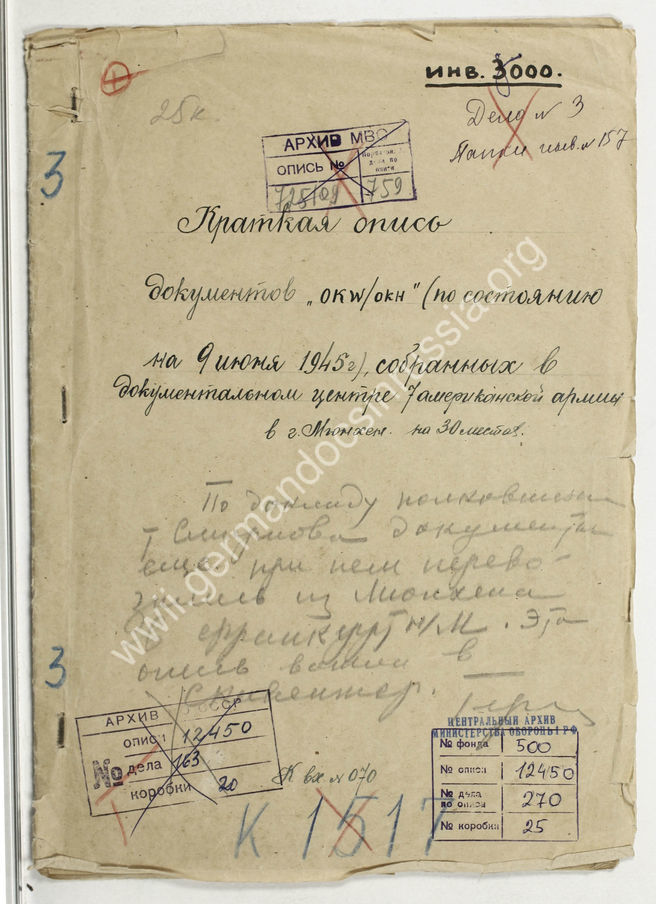 инв. 3000.
25к
Дело № 3
Папки инв. № 157
3
АРХИВ МВС
ОПИСЬ №
725109
759
Краткая опись
документов „OKW/OKH" (по состоянию
на 9 июня 1945г), собранных в
документальном центре 7 американской армии
в г. Мюнхен. на 30 листов.
По докладу полковника
т. Смирнова документы
еще при нем перево-
зились из Мюнхена
в Франкфурт н/М. Эта
опись взята в
3
www.germandocsinrussia.org
АРХИВ СССР
описи 12450
№ дела 163
коробки 20
К вх № 070
К 1517
ЦЕНТРАЛЬНЫЙ АРХИВ
МИНИСТЕРСТВА ОБОРОНЫ РФ
№ фонда 500
№ описи 12450
№ дела по описи 270
№ коробки 25